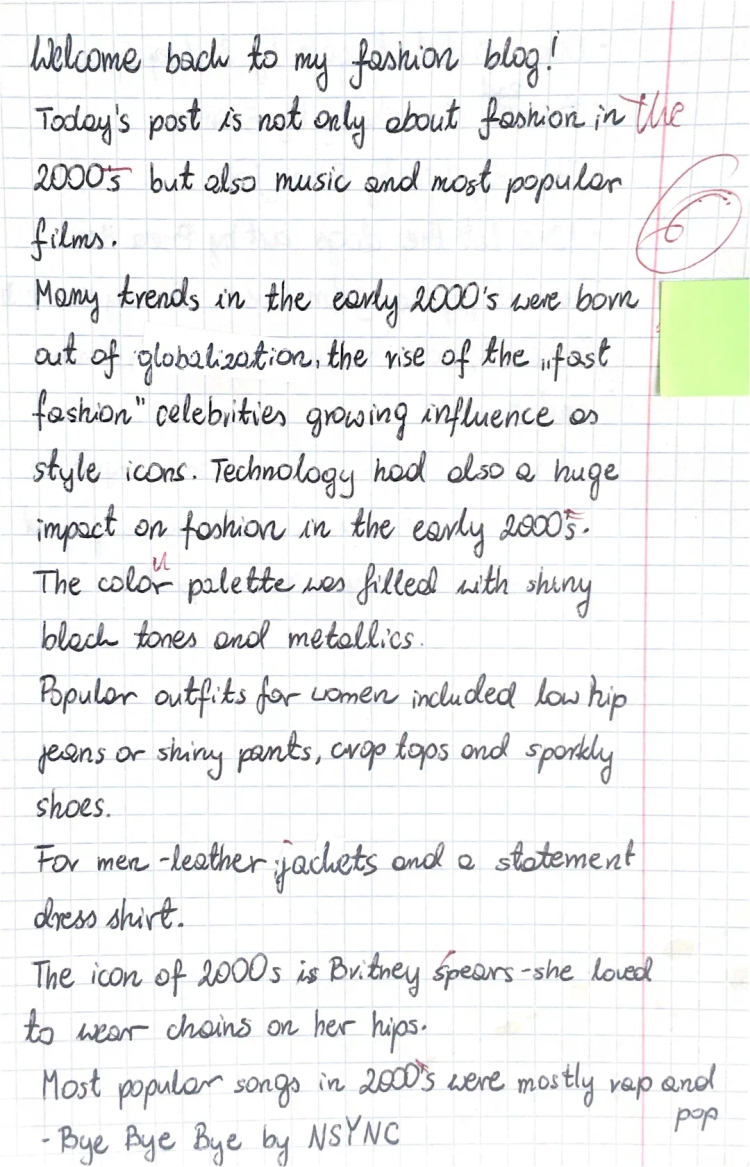 Welcome back to my fashion blog!
Today's post is not only about fashion in the
2000's but also music and most popular
films.
6
Many trends in the early 2000's were born
out of globalization, the rise of the „fast
fashion" celebrities growing influence as
style icons. Technology had also a huge
impact on fashion in the early 2000's.
u
The color palette was filled with shiny
black tones and metallics.
Popular outfits for women included low hip
jeans or shiny pants, crop tops and sparkly
shoes.
For men - leather jackets and a statement
dress shirt.
The icon of 2000s is Britney spears - she loved
to wear chains on her hips.
Most popular songs in 2000's were mostly rap and
pop
- Bye Bye Bye by NSYNC